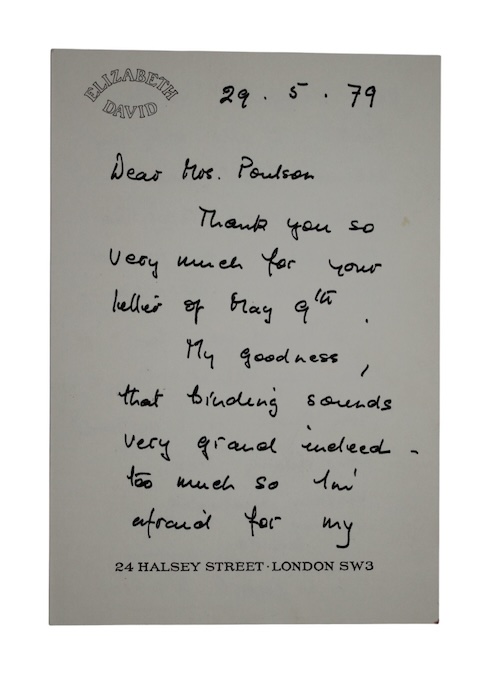 ELIZABETH
DAVID
29 . 5 . 79
Dear Mrs. Poulson
Thank you so
very much for your
letter of May 9th.
My goodness,
that binding sounds
very grand indeed -
too much so I'm
afraid for my
24 HALSEY STREET · LONDON SW3